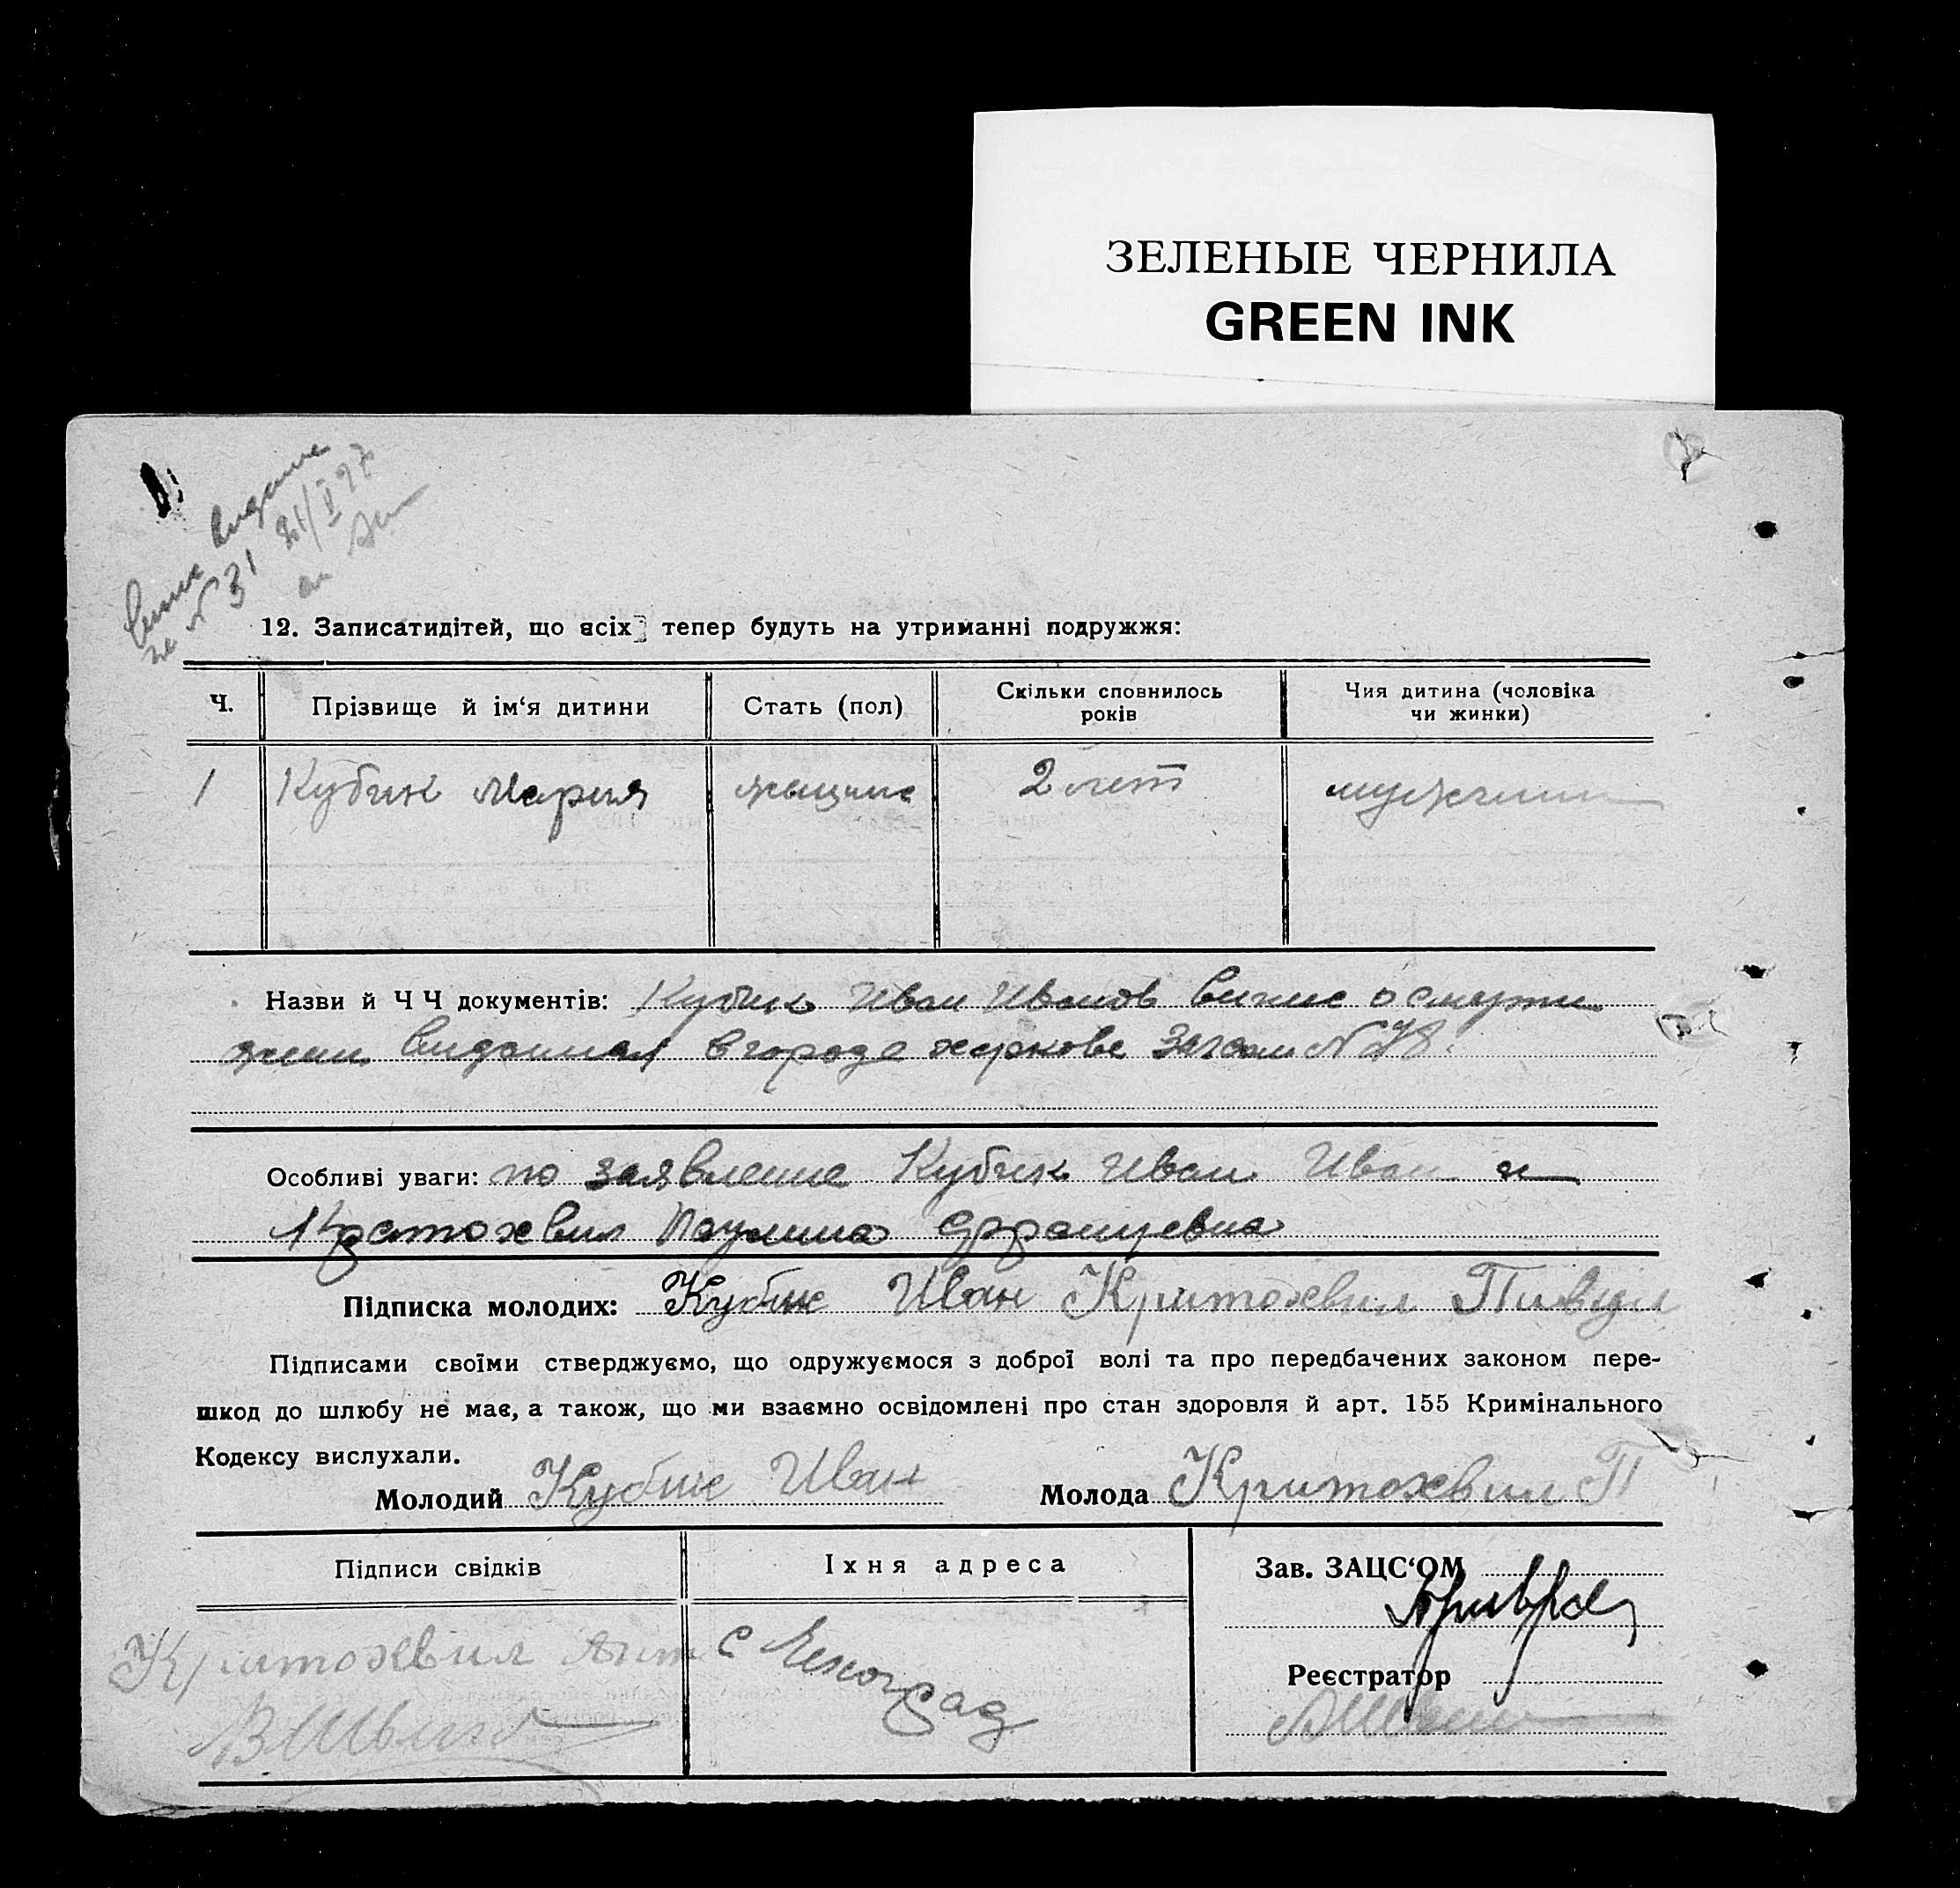 ЗЕЛЕНЫЕ ЧЕРНИЛА
GREEN INK
№ 31
12. Записатидітей, що всіх тепер будуть на утриманні подружжя:
Ч. Прізвище й ім‘я дитини Стать (пол) Скільки сповнилось років Чия дитина (чоловіка чи жинки)
1 Кубик Мария 2 лет мужчини
Назви й Ч Ч документів: Кубик Иван Иванов випис о смерти
жени виданная в городе харкове Загсом №
Особливі уваги: по заявление Кубик Иван Иван и
Кратохвил Паулина Францевна
Підписка молодих: Кубик Иван Критохвил
Підписами своїми стверджуємо, що одружуємося з доброї волі та про передбачених законом пере-
шкод до шлюбу не має, а також, що ми взаємно освідомлені про стан здоровля й арт. 155 Кримінального
Кодексу вислухали.
Молодий Кубик Иван Молода Критохвил П
Підписи свідків Їхня адреса Зав. ЗАЦС‘ОМ
Критохвил Ант с
Реєстратор